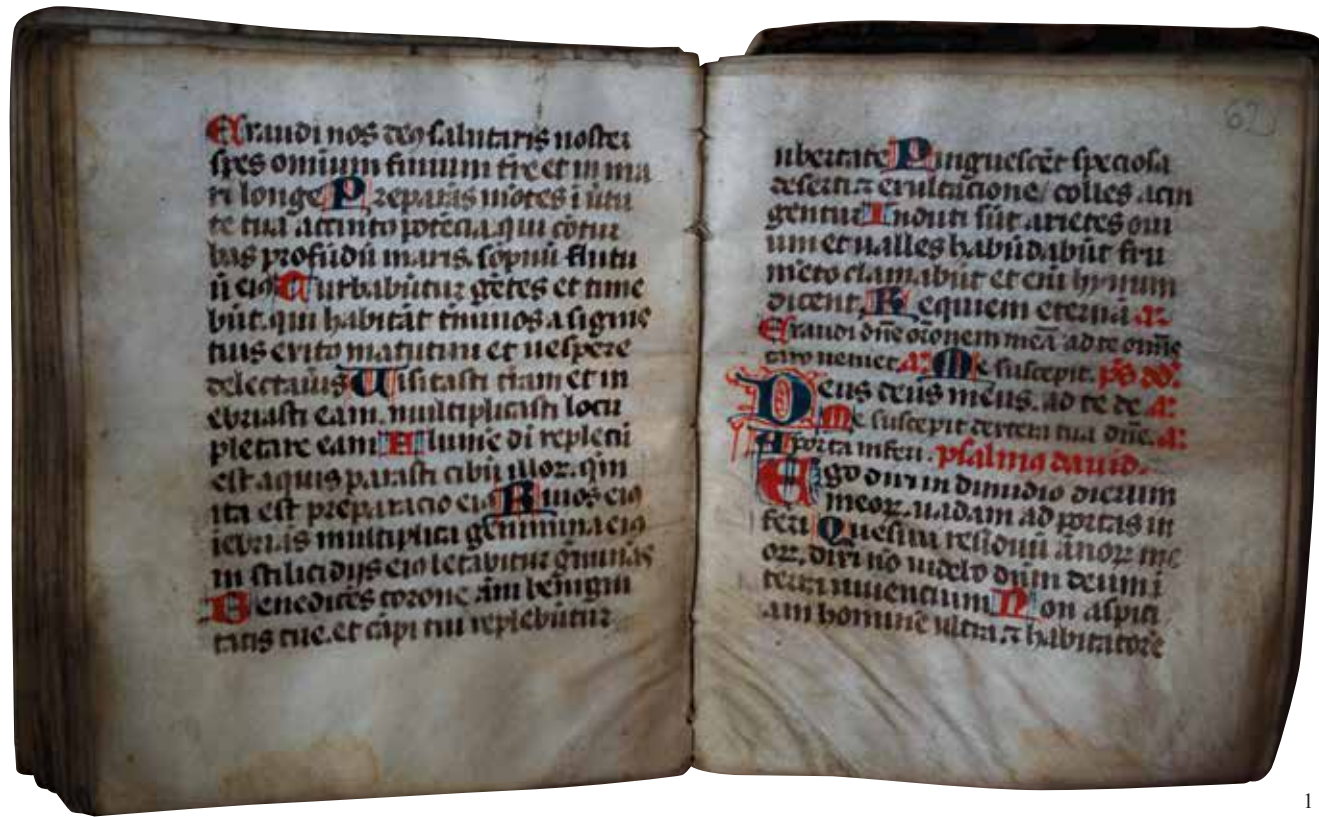 Exaudi nos deꝰ salutaris noster
spes omnium finium tre et in ma
ri longe Preparans mōtes ī ūtu
te tua accinto potēcia. qui cōtur
bas profūdū maris. sonū fluctu
ū eiꝰ Turbabūtur gētes et time
būt. qui habitāt tminos a signis
tuis exito matutini et uespere
delectauis Uisitasti tram et in
ebriasti eam. multiplicasti locu
pletare eam Flumē di repletū
est aquis parasti cibū illoꝝ. qm
ita est preparacio eiꝰ Riuos eiꝰ
iebrias multiplica genimina eiꝰ
in stilicidijs eiꝰ letabitur gminās
Benedices corone āni benigni
tatis tue. et cāpi tui replebūtur
62
ubertate Pinguescēt speciosa
deserti ⁊ exultacione/ colles accin
gentur Induti sūt arietes oui
um et ualles habūdabūt fru
mēto clamabūt et eni hymnum
dicent. Requiem eternā a.
Exaudi dn̄e or̄onem meā ad te om̄is
caro ueniet. a. Me suscepit. pˢ dd.
Deus deus meus. ad te de a.
Me suscepit dextera tua dn̄e. a.
A porta inferi. psalmꝰ dauid.
Ego dixi in dimidio dierum
meoꝝ. uadam ad portas in
feri Quesiui residuū ānoꝝ me
oꝝ. dixi nō uidebo dnm deum ī
terra uiuencium Non aspici
am hominē ultra ⁊ habitatorē
1